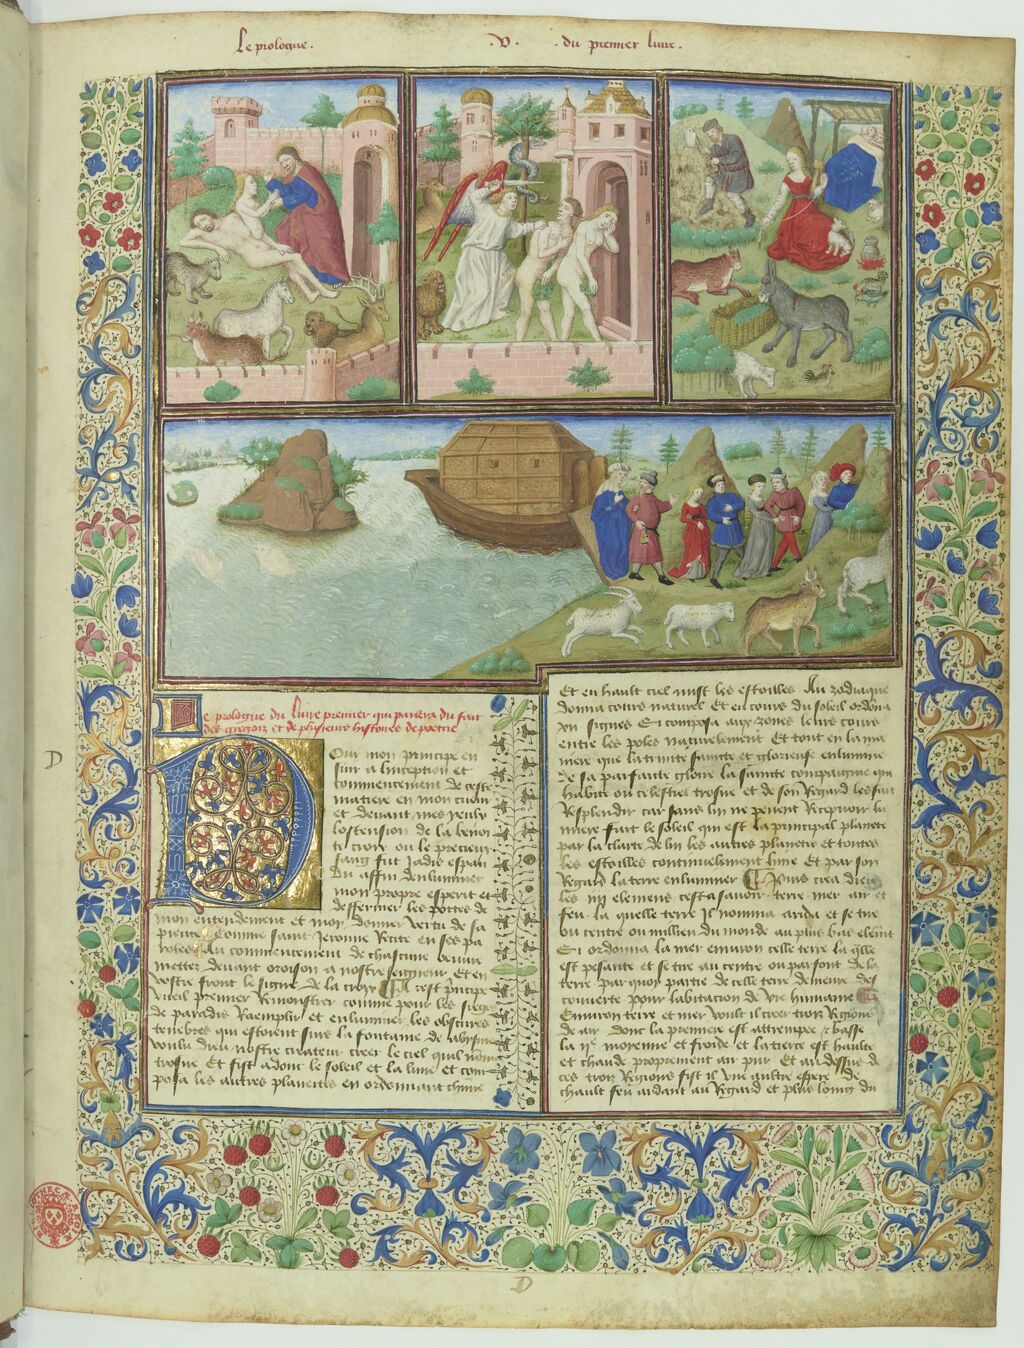 Le prologue.
.V.
du premier livre.
Le prologue du livre premier qui parlera du fait
des gregois et de plusieurs histoires de poetrie
Pour mon principe en
sur a linception et
commencement de ceste
matiere en mon cueur
et devant mes yeulx
lostension de la benoi
te croix ou le precieux
sang fut jadis espan
du affin denluminer
mon propre esperit et
deffermer les portes de
mon entendement et moy donner vertu de sa
pience Comme saint Jerome Recite en ses pa
roles Au commencement de chascune beuvre
metter devant oroison a nostre seigneur Et en
vostre front le signe de la croix Il cest principe
vueil premier Remonstrer comme pour les sieges
de paradis Raemplir et enluminer les obscures
tenebres qui estoient sur la fontaine de labisme
voulu dieu nostre createur creer le ciel quil nomma
trosne Et fist adonc le soleil et la lune et com
posa les autres planettes en ordonnant chune
Et en hault ciel mist les estoilles Au zodiaque
donna cours naturel Et en cours du soleil ordona
xii signes Et composa aux zones leurs cours
entre les poles naturelement Et tout en la ma
niere que la trinite saincte et glorieuse enlumine
de sa parfaite gloire la saincte compaignie qui
habite ou celestiel trosne et de son Regard les fait
Resplendir car sans luy ne pevent Recepvoir lu
miere fait le soleil qui est la principal planete
par la clarte de luy les autres planetes et toutes
les estoilles continuelment luire Et par son
Regard la terre enluminer Puis crea dieu
les iiii elemens cest a savoir terre mer air et
feu la quelle terre Il nomma arida et se tient
ou centre ou millieu du monde au plus bas element
Et ordonna la mer environ celle terre laqlle
est pesante et se tient au centre ou parfont de la
terre par quoy partie de celle terre demeure des
couverte pour labitacion de vie humaine
Environ terre et mer voult il creer trois Regions
de air donc la premiere est attrempee & basse
la iie moyenne et froide et la tierce est haulte
et chaude proprement air pur Et au dessus de
ces trois Regions fist il une aultre espere de
chault feu ardant au Regard et plus loing du
D
D